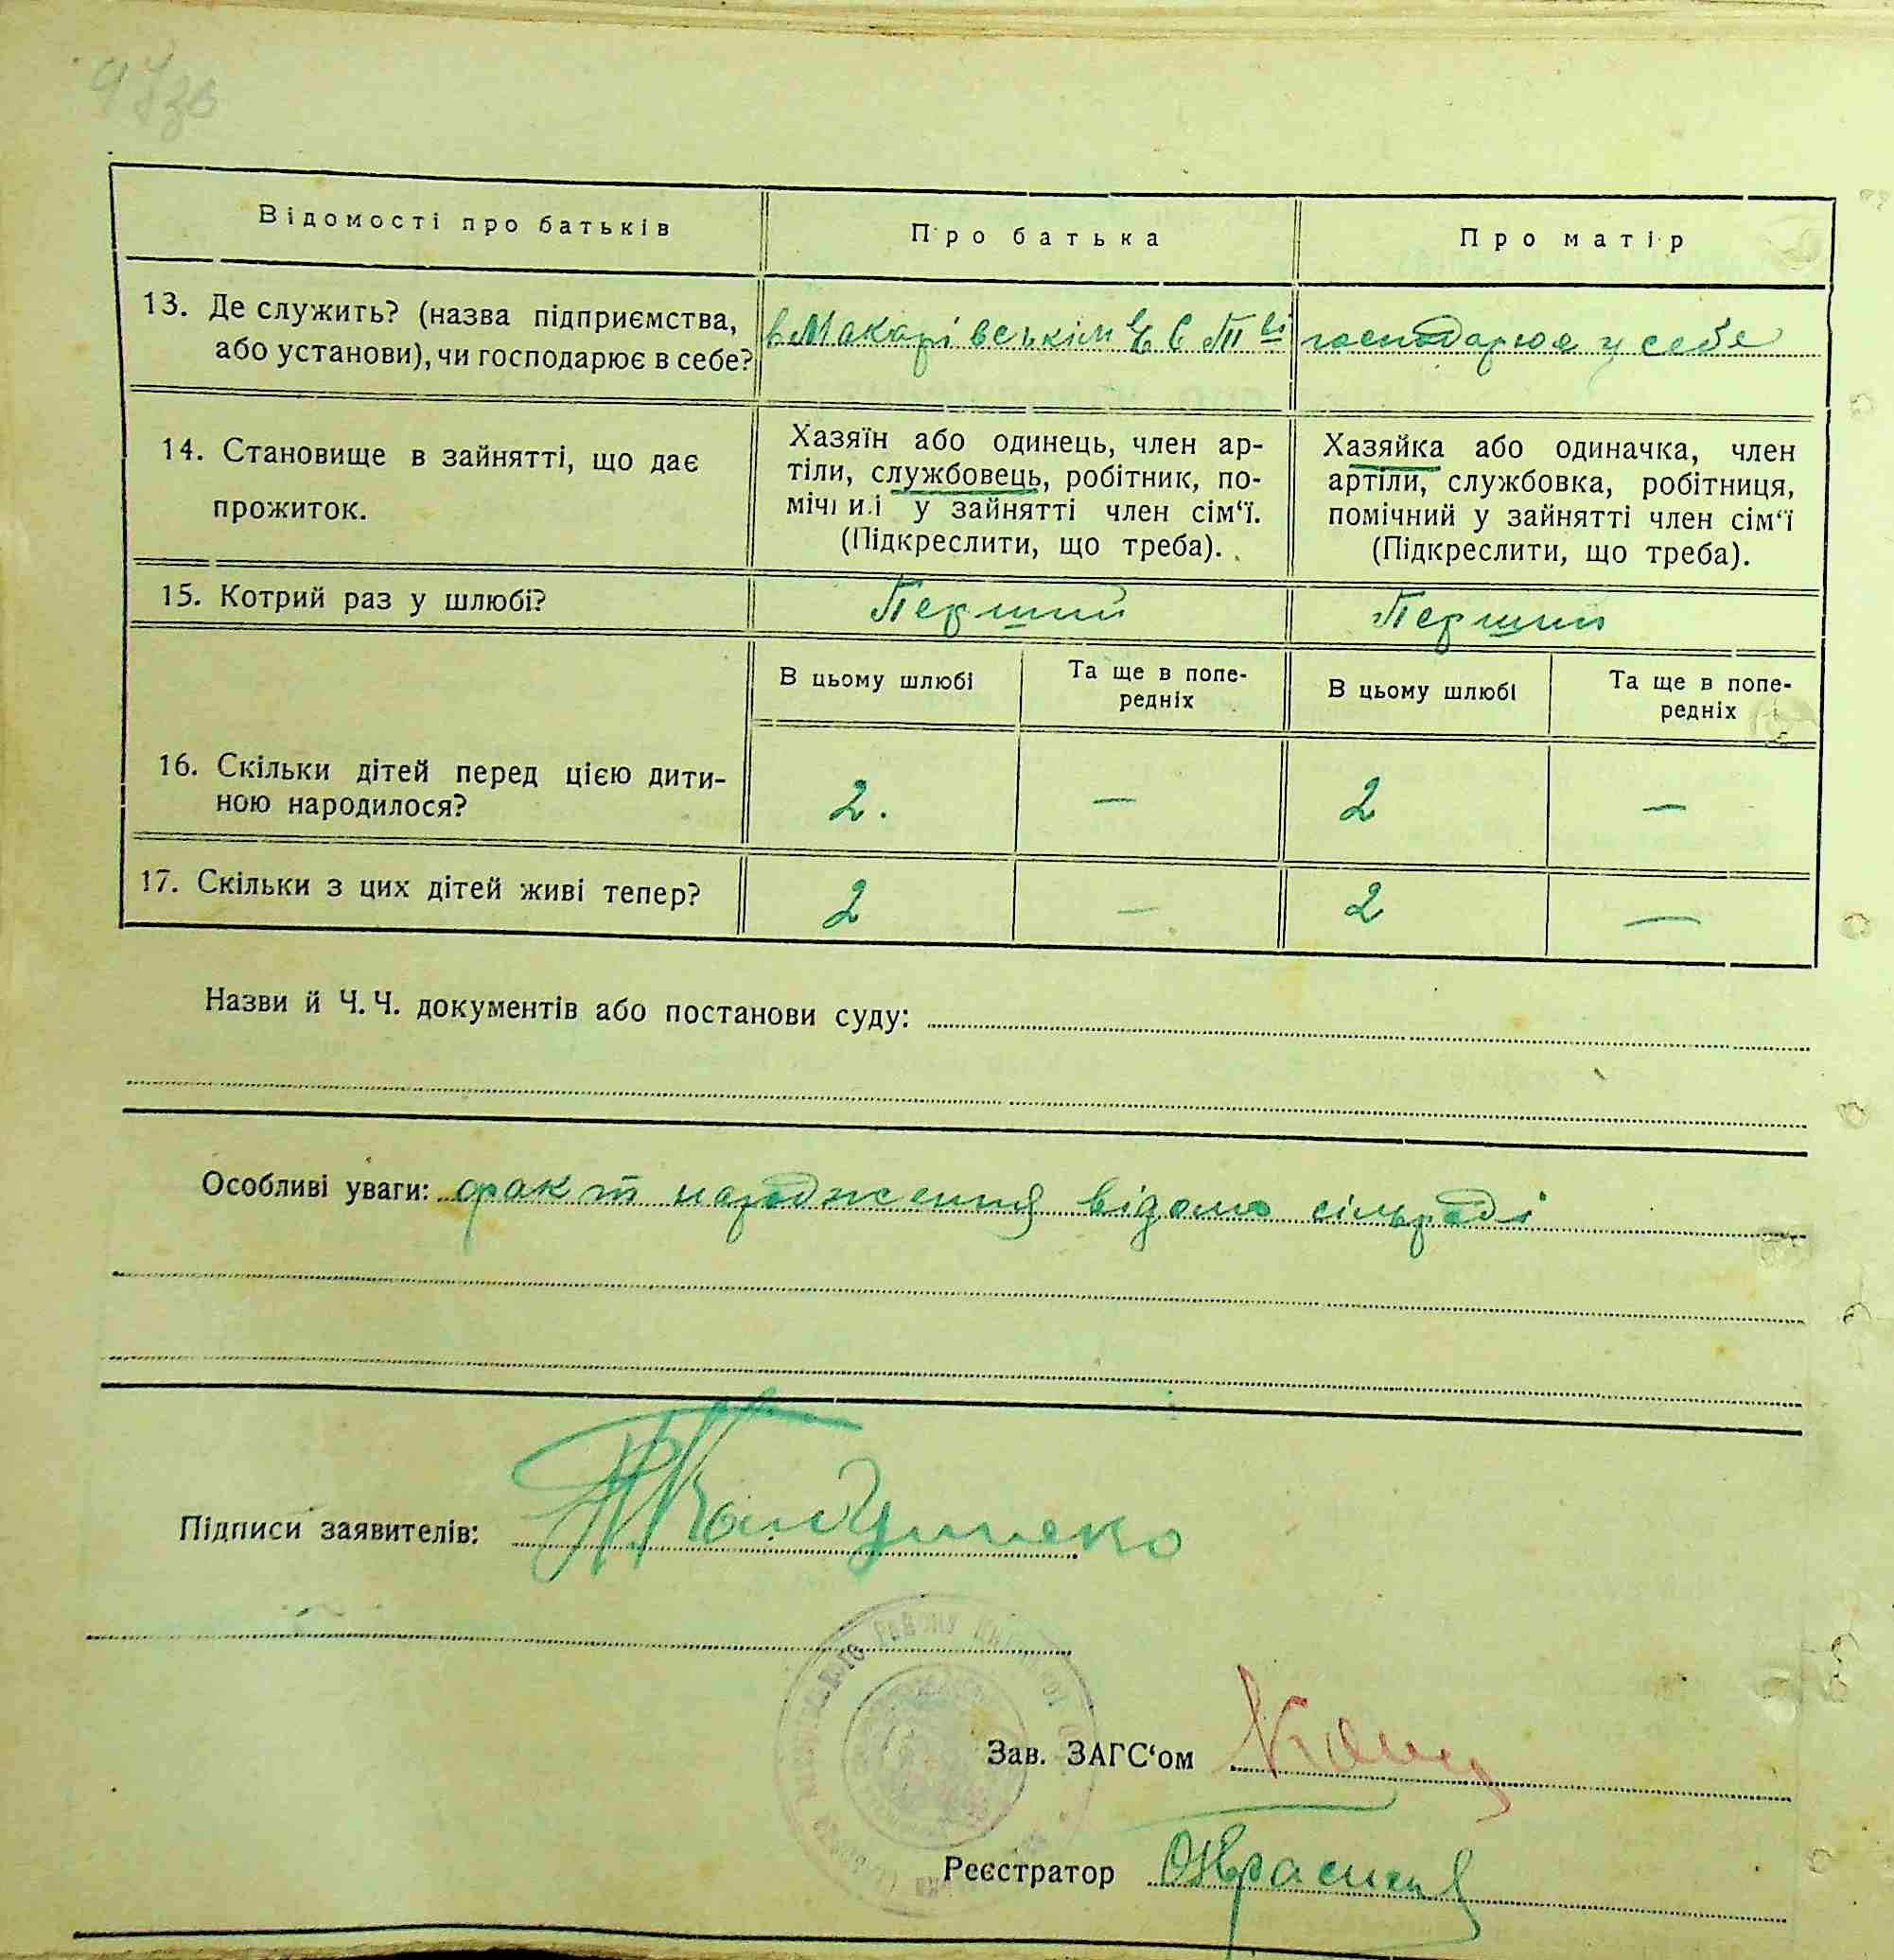 97зв
Відомості про батьків
Про батька
Про матір
13. Де служить? (назва підприємства,
або установи), чи господарює в себе?
в Макарівськім
господарює у себе
14. Становище в зайнятті, що дає
прожиток.
Хазяїн або одинець, член ар-
тіли, службовець, робітник, по-
мічний у зайнятті член сім‘ї.
(Підкреслити, що треба).
Хазяйка або одиначка, член
артіли, службовка, робітниця,
помічний у зайнятті член сім‘ї
(Підкреслити, що треба).
15. Котрий раз у шлюбі?
Перший
Перший
В цьому шлюбі
Та ще в попе-
редніх
В цьому шлюбі
Та ще в попе-
редніх
16. Скільки дітей перед цією дити-
ною народилося?
2.
—
2
—
17. Скільки з цих дітей живі тепер?
2
—
2
—
Назви й Ч. Ч. документів або постанови суду:
Особливі уваги: факт народження відомо сільраді
Підписи заявителів:
Зав. ЗАГС‘ом
Реєстратор